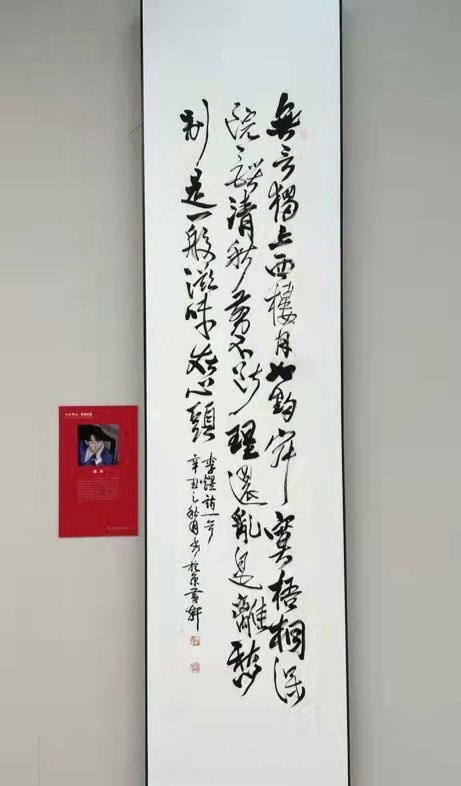 無言獨上西樓月如鈎寂寞梧桐深
院鎖清秋剪不斷理還亂是離愁
別是一般滋味在心頭
李煜詞一首
辛丑之秋月書於京軒